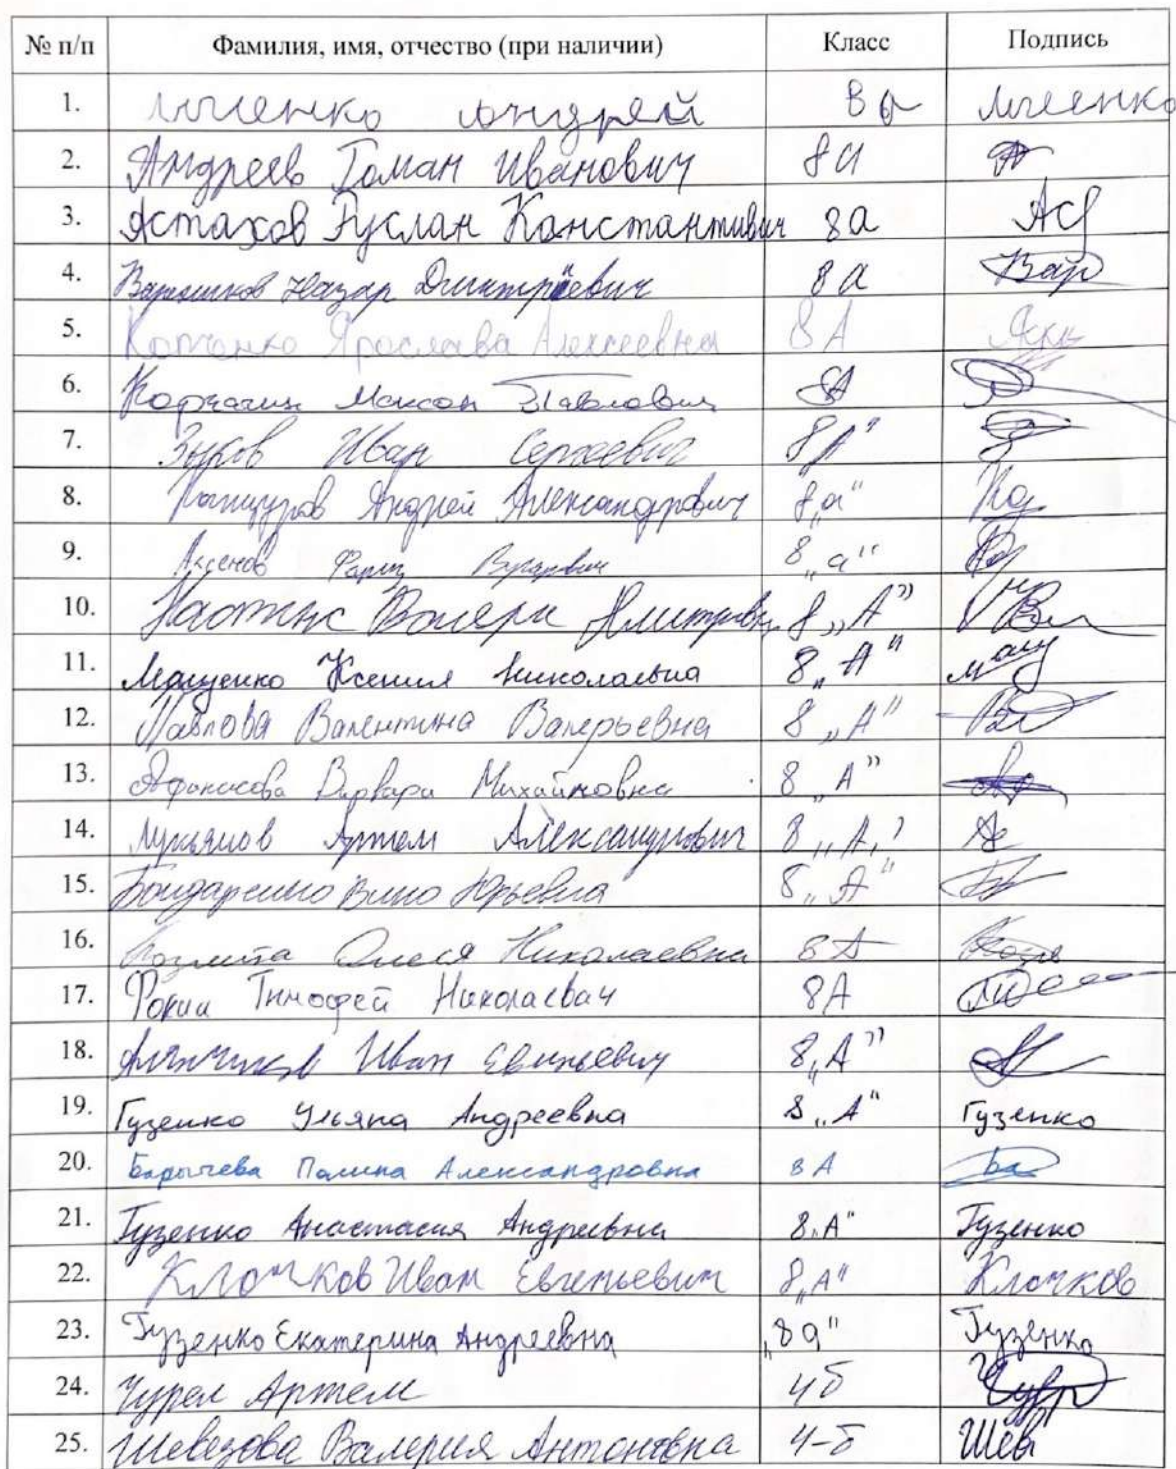 № п/п Фамилия, имя, отчество (при наличии) Класс Подпись
1. андрей
2. Андреев Роман Иванович 8а
3. Астахов Руслан Константинвич 8а Аср
4. Назар Дмитриевич 8а Вар
5. Ярослава Алексеевна 8А
6. Корчагин Максим Павлович 8А
7. Зыков Иван Сергеевич 8А"
8. Андрей Александрович 8„а"
9. Аксенов 8„а"
10. 8„А"
11. Мащенко Ксения Николаевна 8„А" Мащ
12. Павлова Валентина Валерьевна 8„А"
13. Варвара Михайловна 8„А"
14. Лукьянов Артем Александрович 8„А"
15. Юрьевна 8„А"
16. Олеся Николаевна 8А
17. Фокин Тимофей Николаевич 8А
18. Иван 8„А"
19. Гузенко Ульяна Андреевна 8„А" Гузенко
20. Барычева Полина Александровна 8А Ба
21. Гузенко Анастасия Андреевна 8„А" Гузенко
22. Клочков Иван Евгеньевич 8„А" Клочков
23. Гузенко Екатерина Андреевна „8а" Гузенко
24. Артем 4б
25. Валерия Антоновна 4-б Шев